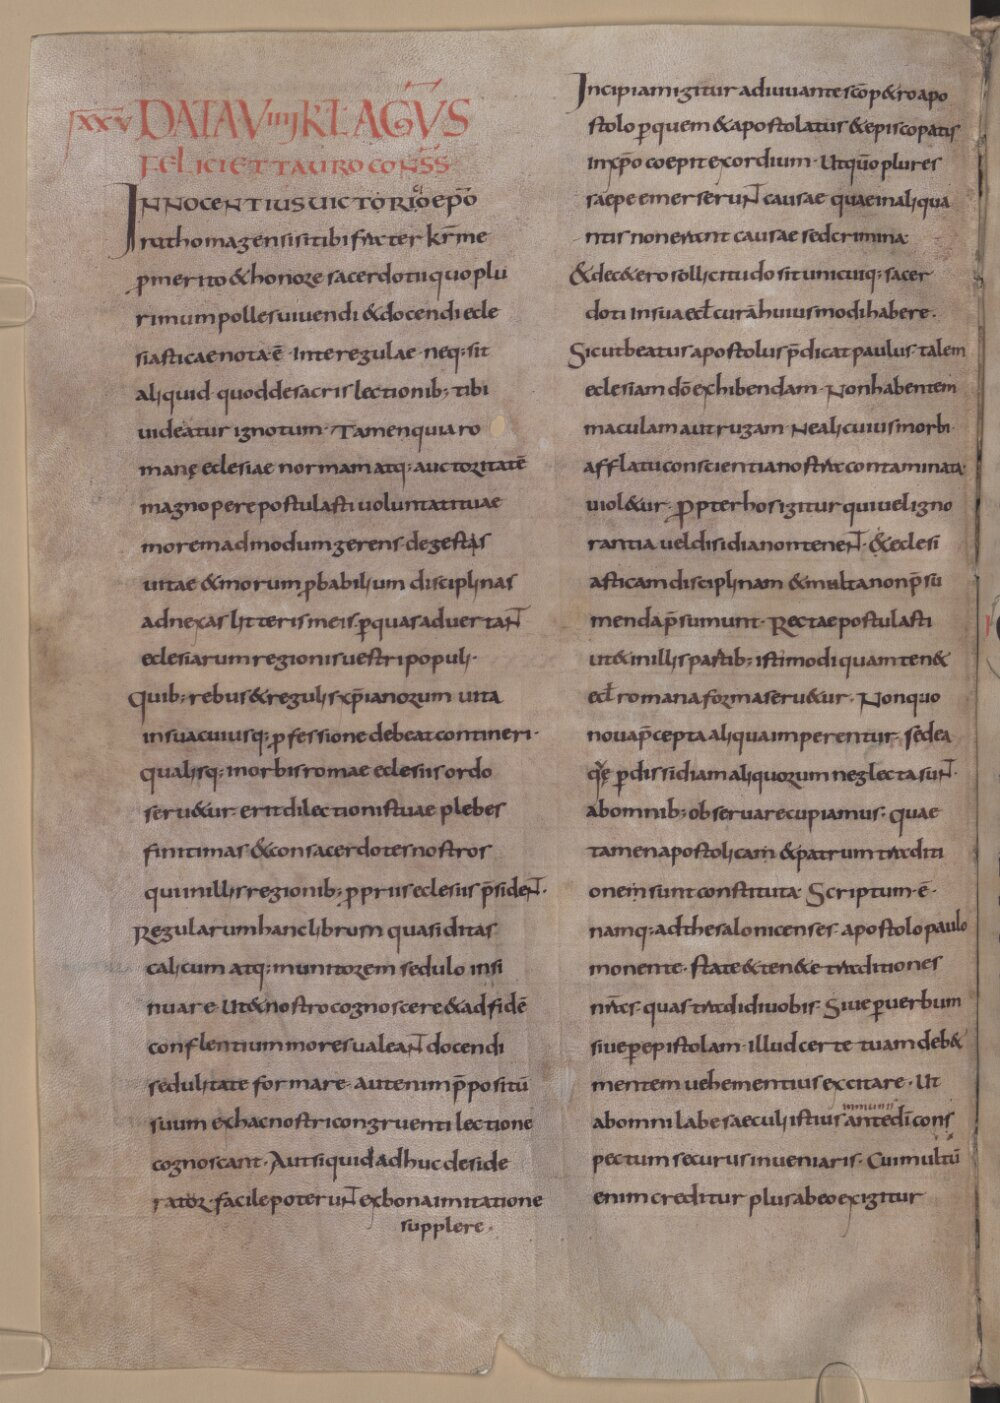 XXXV DATA VIIII KL AGVS
FELICI ET TAURO CONSS
INNOCENTIUS UICTORICIO EPO
rothomagensi si tibi frater kr̄me
ꝓ merito & honore sacerdotii quo plu
rimum polles uiuendi & docendi ecle
siasticae nota ē · Inte regulae neq; sit
aliquid quod de sacris lectionib; tibi
uideatur ignotum · Tamen quia ro
manę eclesiae normam atq; auctoritatē
magnopere postulasti uoluntati tuae
morem admodum gerens · degestas
uitae & morum ꝓbabilium disciplinas
adnexas litteris meis · ꝑ quas aduertaNT
eclesiarum regionis uestri populi ·
Quib; rebus & regulis xp̄ianorum uita
in sua cuiusq; ꝓfessione debeat contineri ·
qualisq; in orbis romae eclesiis ordo
seru&ur · erit dilectionis tuae plebes
finitimas & consacerdotes nostros
qui in illis regionib; ꝓpriis eclesiis p̄sideNT ·
Regularum hanc librum quasi ditas
calicum atq; munitorem sedulo insi
nuare · Ut & nostro cognoscere & ad fidē
conflentium mores ualeaNT docendi
sedulitate formare · aut enim p̄positū
suum ex hac nostri congruenti lectione
cognoscant · Aut si quid adhuc deside
rator · facile poteruNT ex bona imitatione
supplere ·
Incipiam igitur adiuuante sc̄o p&ro apo
stolo ꝑ quem & apostolatus & episcopatus
in xp̄o coepit exordium · Ut quō plures
saepe emerseruNT causae quae in aliqua
ntis non erant causae sed crimina
& dec&ero sollicitudo sit unicuiq; sacer
doti In sua ecl̄ curā huius modi habere ·
Sicut beatus apostolus p̄dicat paulus · talem
eclesiam dō exhibendam · Non habentem
maculam aut rugam · Ne alicuius morbi
afflatu conscientia nostra contaminata
uiol&ur · Propter hos igitur qui uel igno
rantia uel disidia non teneNT · & eclesi
asticam disciplinam & multa non p̄su
menda p̄sumunt · Rectae postulasti
ut & in illis partib; istimodi quam ten&
ecl̄ romana forma seru&ur · Non quo
noua p̄cepta aliqua imperentur · sed ea
qꝫ ꝑ dissidiam aliquorum neglecta suNT ·
ab omnib; obseruare cupiamus · quae
tamen apostolicam & patrum traditi
onem sunt constituta · Scriptum · ē ·
namq; ad thesalonicenses · apostolo paulo
monente · state & ten&e traditiones
nr̄as · quas tradidi uobis · Siue ꝑ uerbum
siue per epistolam · illud certe tuam deb&
mentem uehementius excitare · Ut
ab omni labe saeculi istius immunis ante di cons
pectum securus inueniaris · Cui multū
enim creditur plus ab eo exigitur